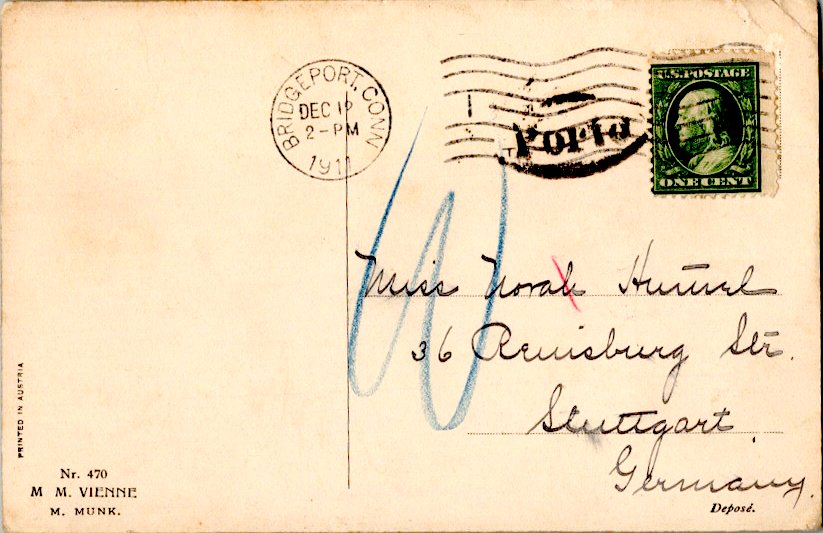 BRIDGEPORT, CONN
DEC 12
2-PM
1911
Porto
T
U.S. POSTAGE
ONE CENT
Miss Norah Hummel
36 Reinsburg Str.
Stuttgart
Germany.
PRINTED IN AUSTRIA
Nr. 470
M M. VIENNE
M. MUNK.
Deposé.